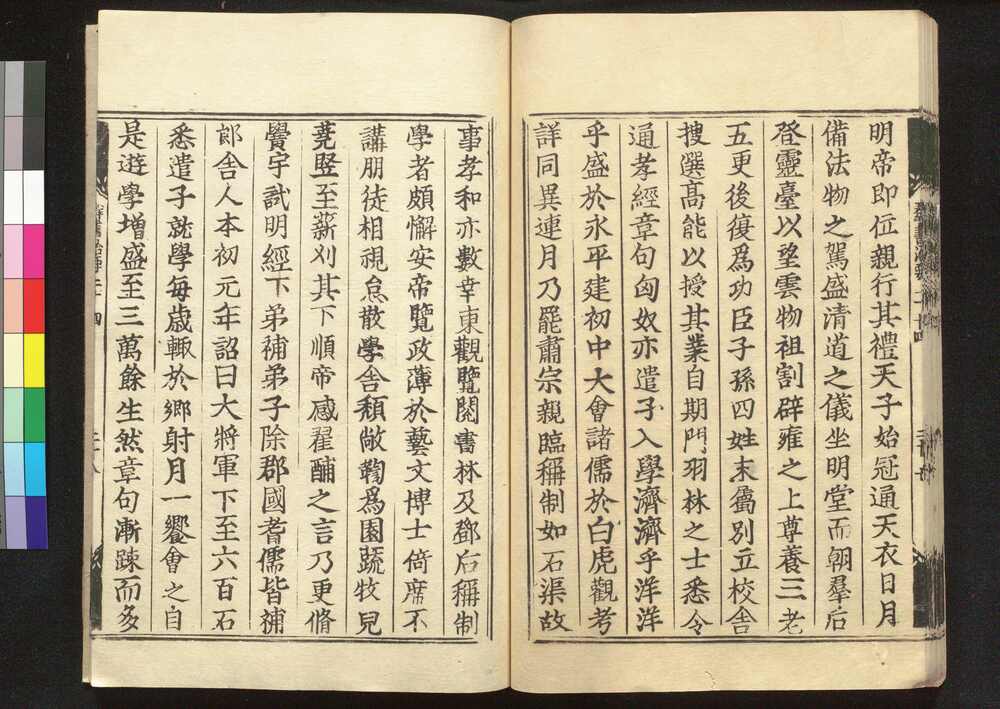 明帝即位親行其禮天子始冠通天衣日月
備法物之駕盛清道之儀坐明堂而朝羣后
登靈臺以望雲物袒割辟雍之上尊養三老
五更後復爲功臣子孫四姓末屬別立校舍
搜選髙能以授其業自期門羽林之士悉令
通孝經章句匈奴亦遣子入學濟濟乎洋洋
乎盛於永平建初中大會諸儒於白虎觀考
詳同異連月乃罷肅宗親臨稱制如石渠故
事孝和亦數幸東觀覽閱書林及鄧后稱制
學者頗懈安帝覽政薄於藝文博士倚席不
講朋徒相視怠散學舍頹敝鞠爲園蔬牧兒
蕘竪至薪刈其下順帝感翟酺之言乃更脩
黌宇試明經下弟補弟子除郡國耆儒皆補
郎舍人本初元年詔曰大將軍下至六百石
悉遣子就學每歳輙於鄉射月一饗會之自
是遊學增盛至三萬餘生然章句漸踈而多
群書治要二十四